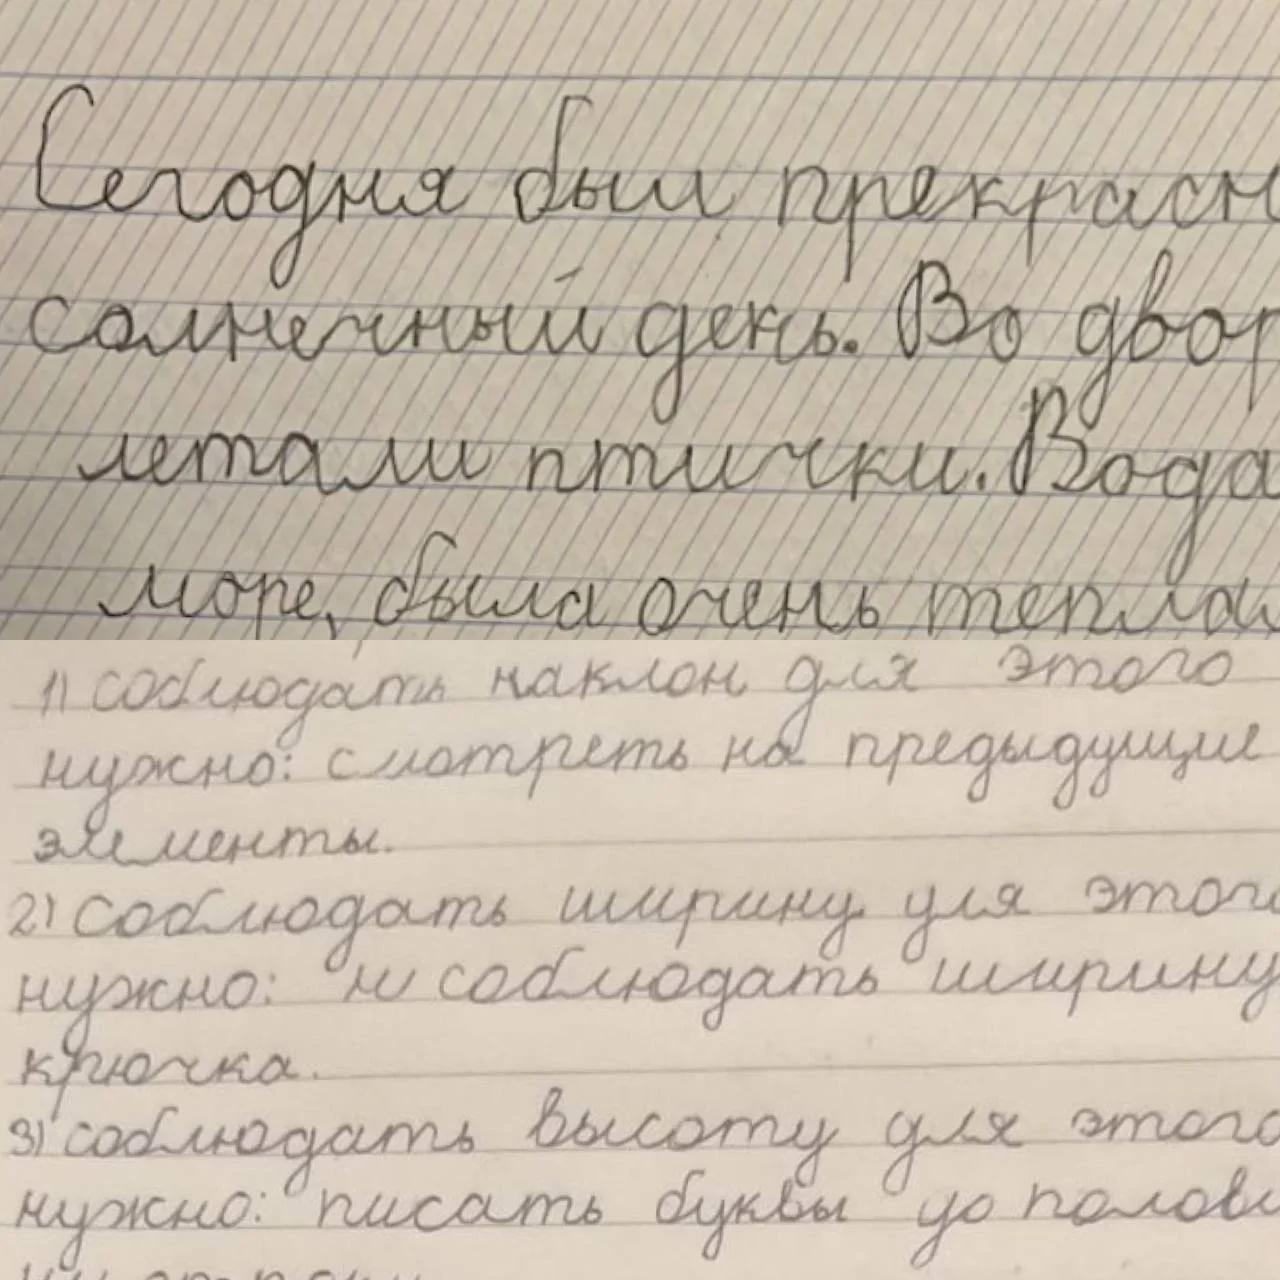 Сегодня был прекрасн
солнечный день. Во двор
летали птички. Вода
море, была очень тепла
1) соблюдать наклон для этого
нужно: смотреть на предыдущие
элементы.
2) соблюдать ширину для этого
нужно: и соблюдать ширину
крючка.
3) соблюдать высоту для этого
нужно: писать буквы до полови